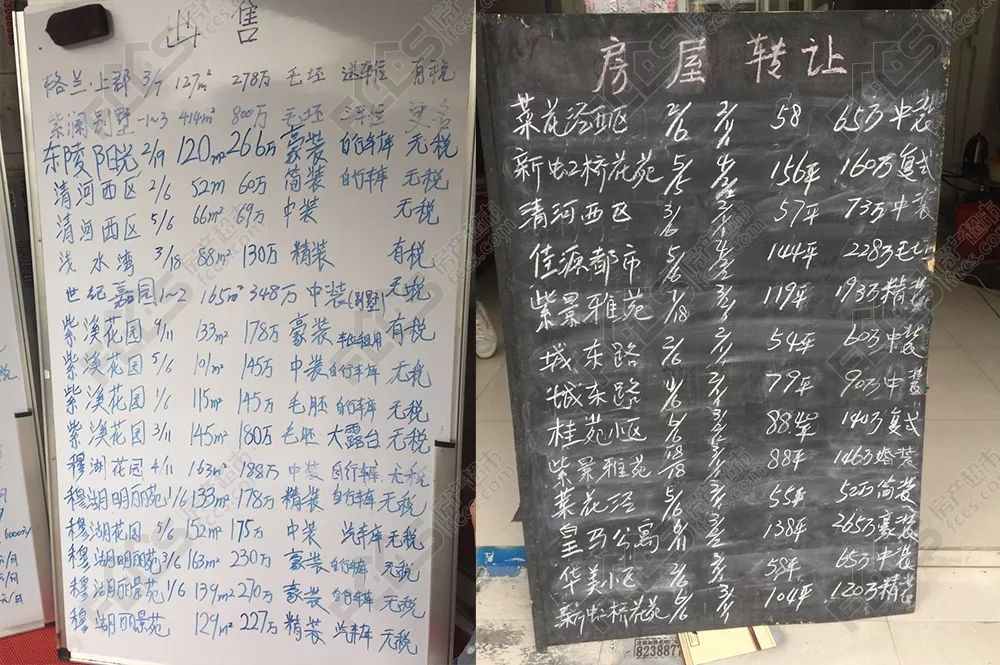 出售
格兰·上郡 3/7 127m² 278万 毛坯 送车位 有税
紫澜别墅 -1~3 414m² 800万 毛坯 三车位
东陵阳悦 2/9 120m² 266万 豪装 自行车库 无税
清河西区 2/6 52m² 60万 简装 自行车库 无税
清河西区 5/6 66m² 69万 中装 无税
浅水湾 3/18 88m² 130万 精装 有税
世纪嘉园 1~2 165m² 348万 中装(别墅) 无税
紫溪花园 9/11 133m² 178万 豪装 有税
紫溪花园 5/6 101m² 145万 中装 自行车库 无税
紫溪花园 1/6 115m² 145万 毛胚 自行车库 无税
紫溪花园 3/11 145m² 180万 毛胚 大露台 无税
穆湖花园 4/11 163m² 188万 中装 自行车库 无税
穆湖明丽苑 1/6 133m² 178万 精装 自行车库 无税
穆湖花园 5/6 152m² 175万 中装 汽车库 无税
穆湖明丽苑 3/6 163m² 230万 豪装 自行车库 无税
穆湖明丽景苑 1/6 139m² 210万 豪装 自行车库 无税
穆湖丽景苑 129m² 227万 精装 汽车库 无税
房屋转让
菜花泾西区 2/6 58 65万 中装
新虹桥花苑 5/5 156平 160万 复式
清河西区 3/6 57平 73万 中装
佳源都市 5/6 144平 228万 毛
紫景雅苑 7/18 119平 193万 精装
城东路 2/6 54平 60万 中装
城东路 4/6 79平 90万 中装
桂苑小区 88平 140万 复式
紫景雅苑 18/18 88平 146万 婚装
菜花泾 5/6 55平 52万 简装
皇马公寓 138平 265万 豪装
华美小区 2/6 58平 65万 中装
新虹桥花苑 104平 120万 精装
8238877
房产超市
fccs.com